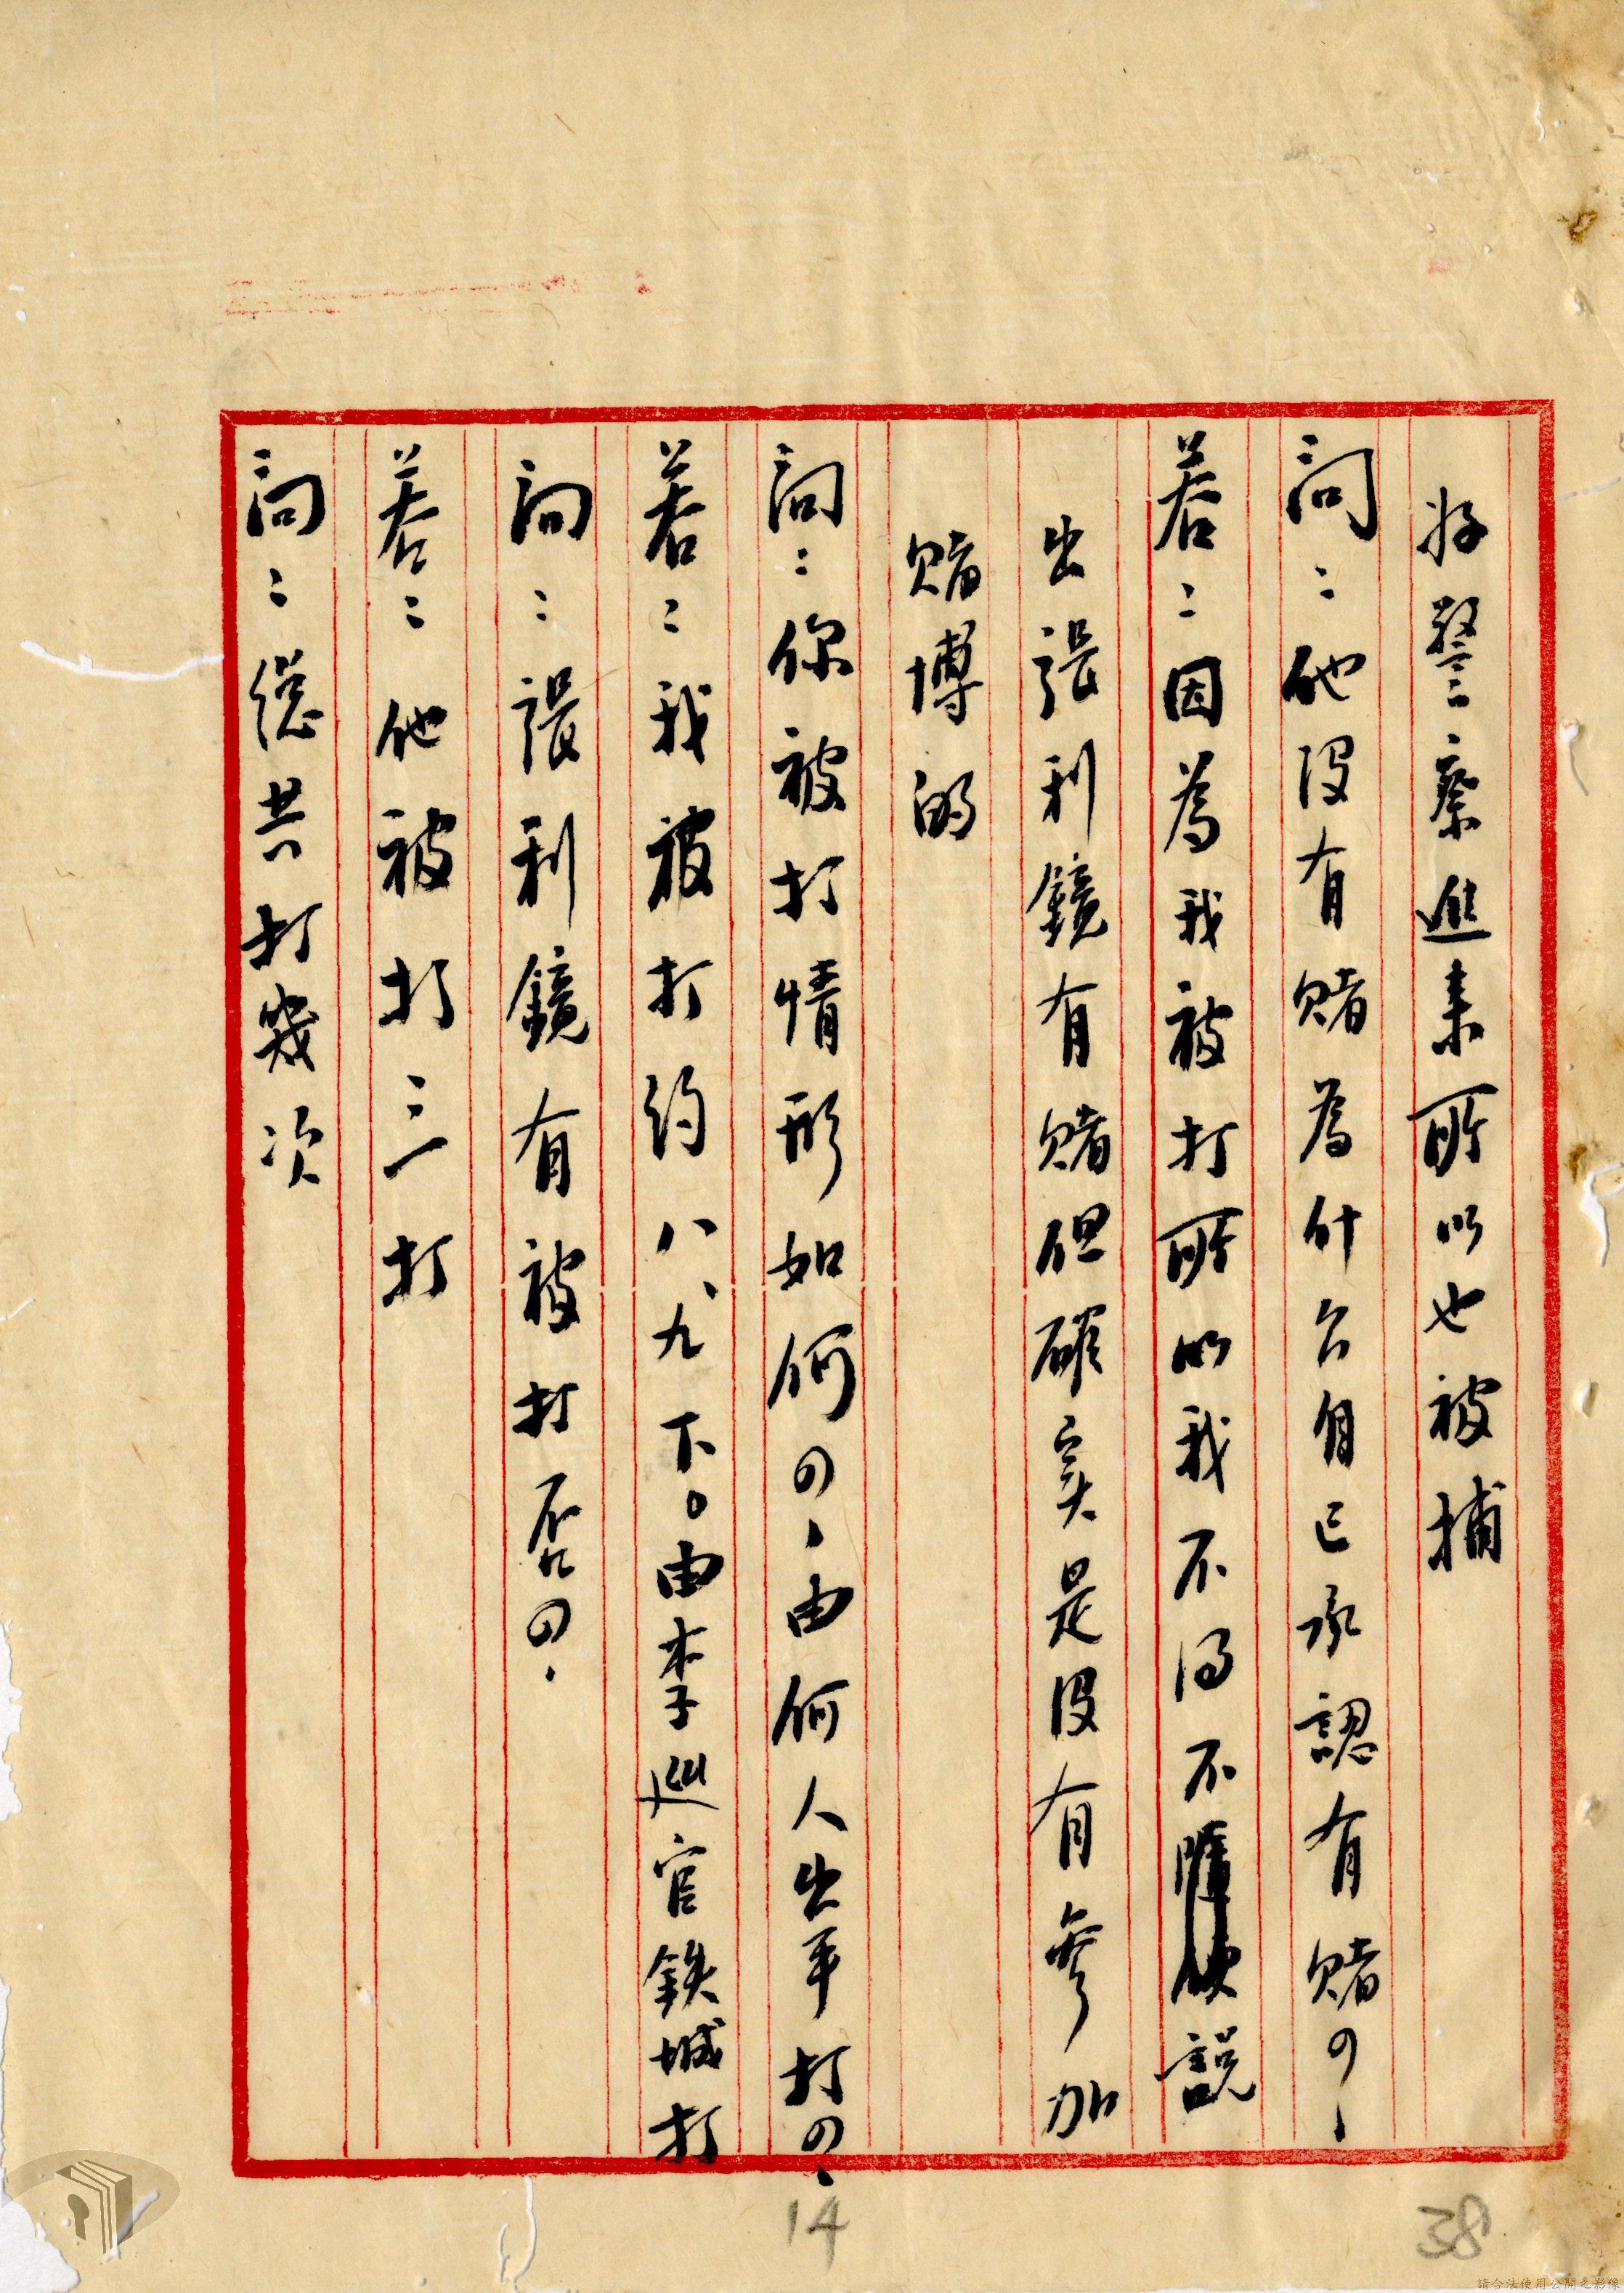 好警察進来所以也被捕
問：他没有賭為什么自己承認有賭?
答：因為我被打所以我不得不說
出張利鏡有賭但確实是没有参加
賭博的
問：你被打情形如何?由何人出手打?
答：我被打約八、九下。由李巡官鉄城打
問：張利鏡有被打否?
答：他被打三打
問：總共打幾次
14
38
請合法使用公開之影像